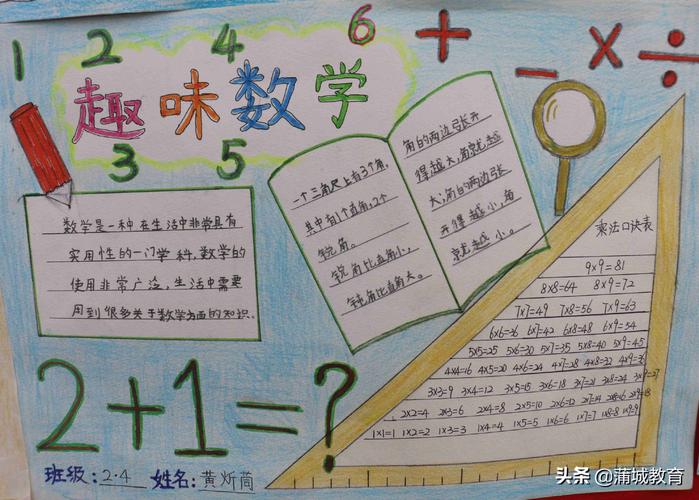 1 2 4 6 + - × ÷
趣味数学
3 5
数学是一种在生活中非常具有
实用性的一门学科.数学的
使用非常广泛,生活中需要
用到很多关于数学方面的知识.
一个三角尺上有3个角,
其中有1个直角,2个
锐角。
锐角比直角小,
钝角比直角大。
角的两边张开
得越大,角就越
大;角的两边张
开得越小,角
就越小。
乘法口诀表
9×9=81
8×8=64 8×9=72
7×7=49 7×8=56 7×9=63
6×6=36 6×7=42 6×8=48 6×9=54
5×5=25 5×6=30 5×7=35 5×8=40 5×9=45
4×4=16 4×5=20 4×6=24 4×7=28 4×8=32 4×9=36
3×3=9 3×4=12 3×5=15 3×6=18 3×7=21 3×8=24 3×9=27
2×2=4 2×3=6 2×4=8 2×5=10 2×6=12 2×7=14 2×8=16 2×9=18
1×1=1 1×2=2 1×3=3 1×4=4 1×5=5 1×6=6 1×7=7 1×8=8 1×9=9
2+1=?
班级:2.4 姓名:黄炘茼
头条 @蒲城教育